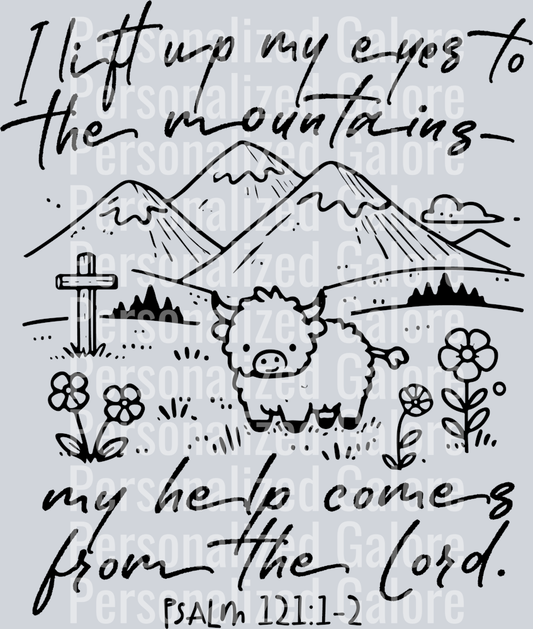 I lift up my eyes to
the mountains-
my help comes
from the Lord.
PSALM 121:1-2
Personalized Galore
Personalized Galore
Personalized Galore
Personalized Galore
Personalized Galore
Personalized Galore
Personalized Galore
Personalized Galore
Personalized Galore
Personalized Galore
Personalized Galore